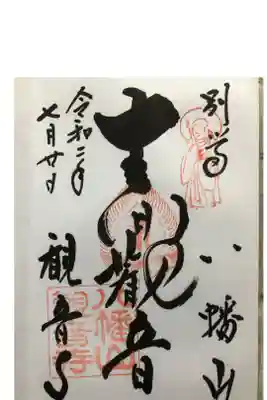 別尊
八幡山
観音
観音寺
令和二年
七月廿日
八幡山
観音寺